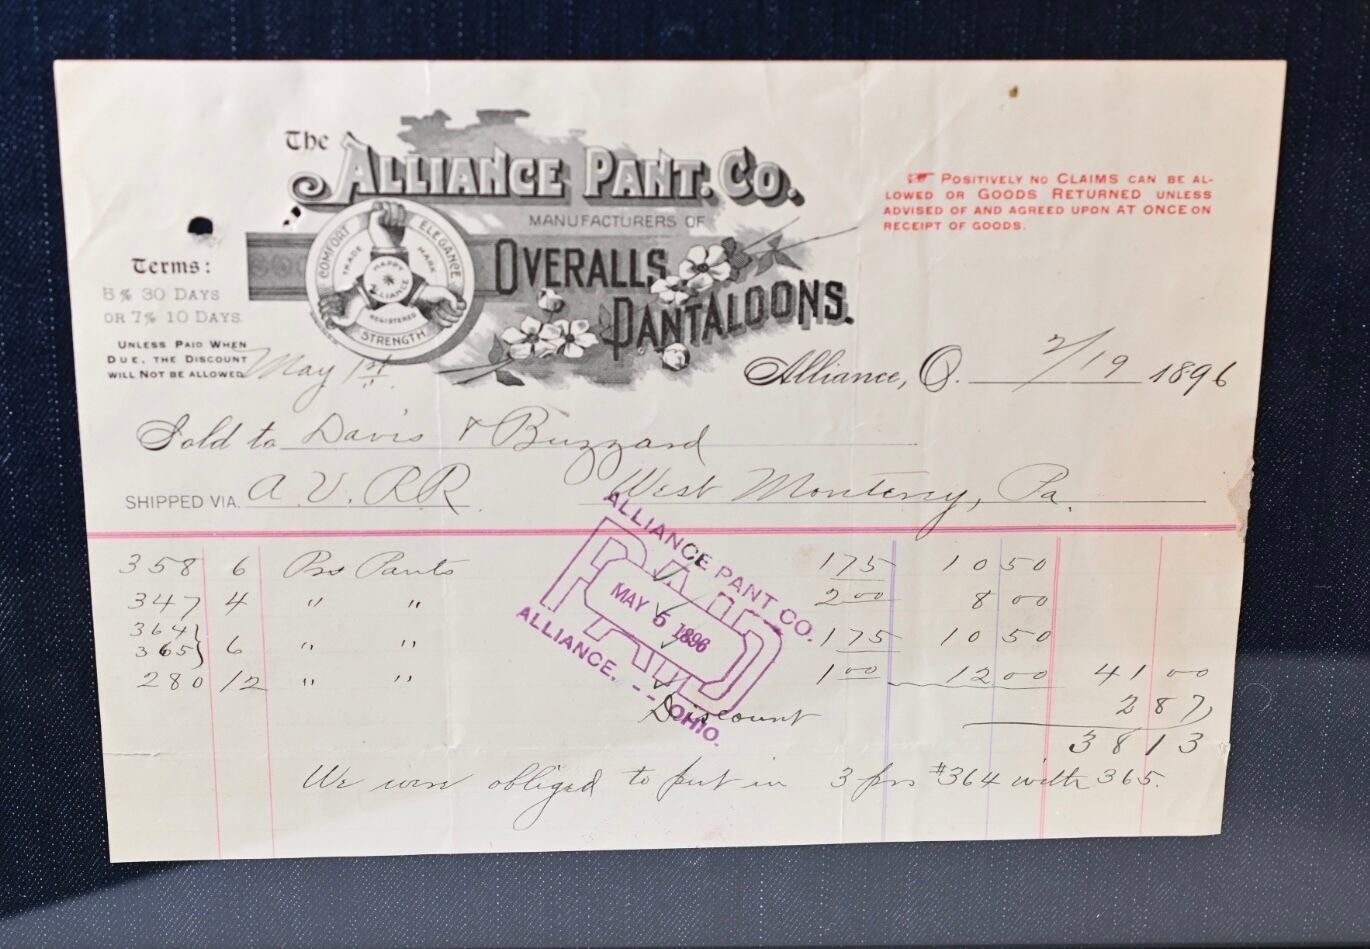 The
ALLIANCE PANT. CO.
MANUFACTURERS OF
OVERALLS
PANTALOONS.
COMFORT
ELEGANCE
STRENGTH
TRADE MARK
HAPPY
ALLIANCE
REGISTERED
☞ POSITIVELY NO CLAIMS CAN BE AL-
LOWED OR GOODS RETURNED UNLESS
ADVISED OF AND AGREED UPON AT ONCE ON
RECEIPT OF GOODS.
Terms:
5% 30 DAYS
OR 7% 10 DAYS.
UNLESS PAID WHEN
DUE, THE DISCOUNT
WILL NOT BE ALLOWED.
May 1st.
Alliance, O. 2/19 1896
Sold to Davis & Buzzard
SHIPPED VIA. A. V. R R. West Monterey, Pa.
358 6 Prs Pants 1 75 10 50
347 4 " " 2 00 8 00
364}
365} 6 " " 1 75 10 50
280 12 " " 1 00 12 00 41 00
Discount 2 87
38 13
We were obliged to put in 3 prs #364 with 365.
ALLIANCE PANT CO.
PAID
MAY 5 1896
ALLIANCE, -- OHIO.